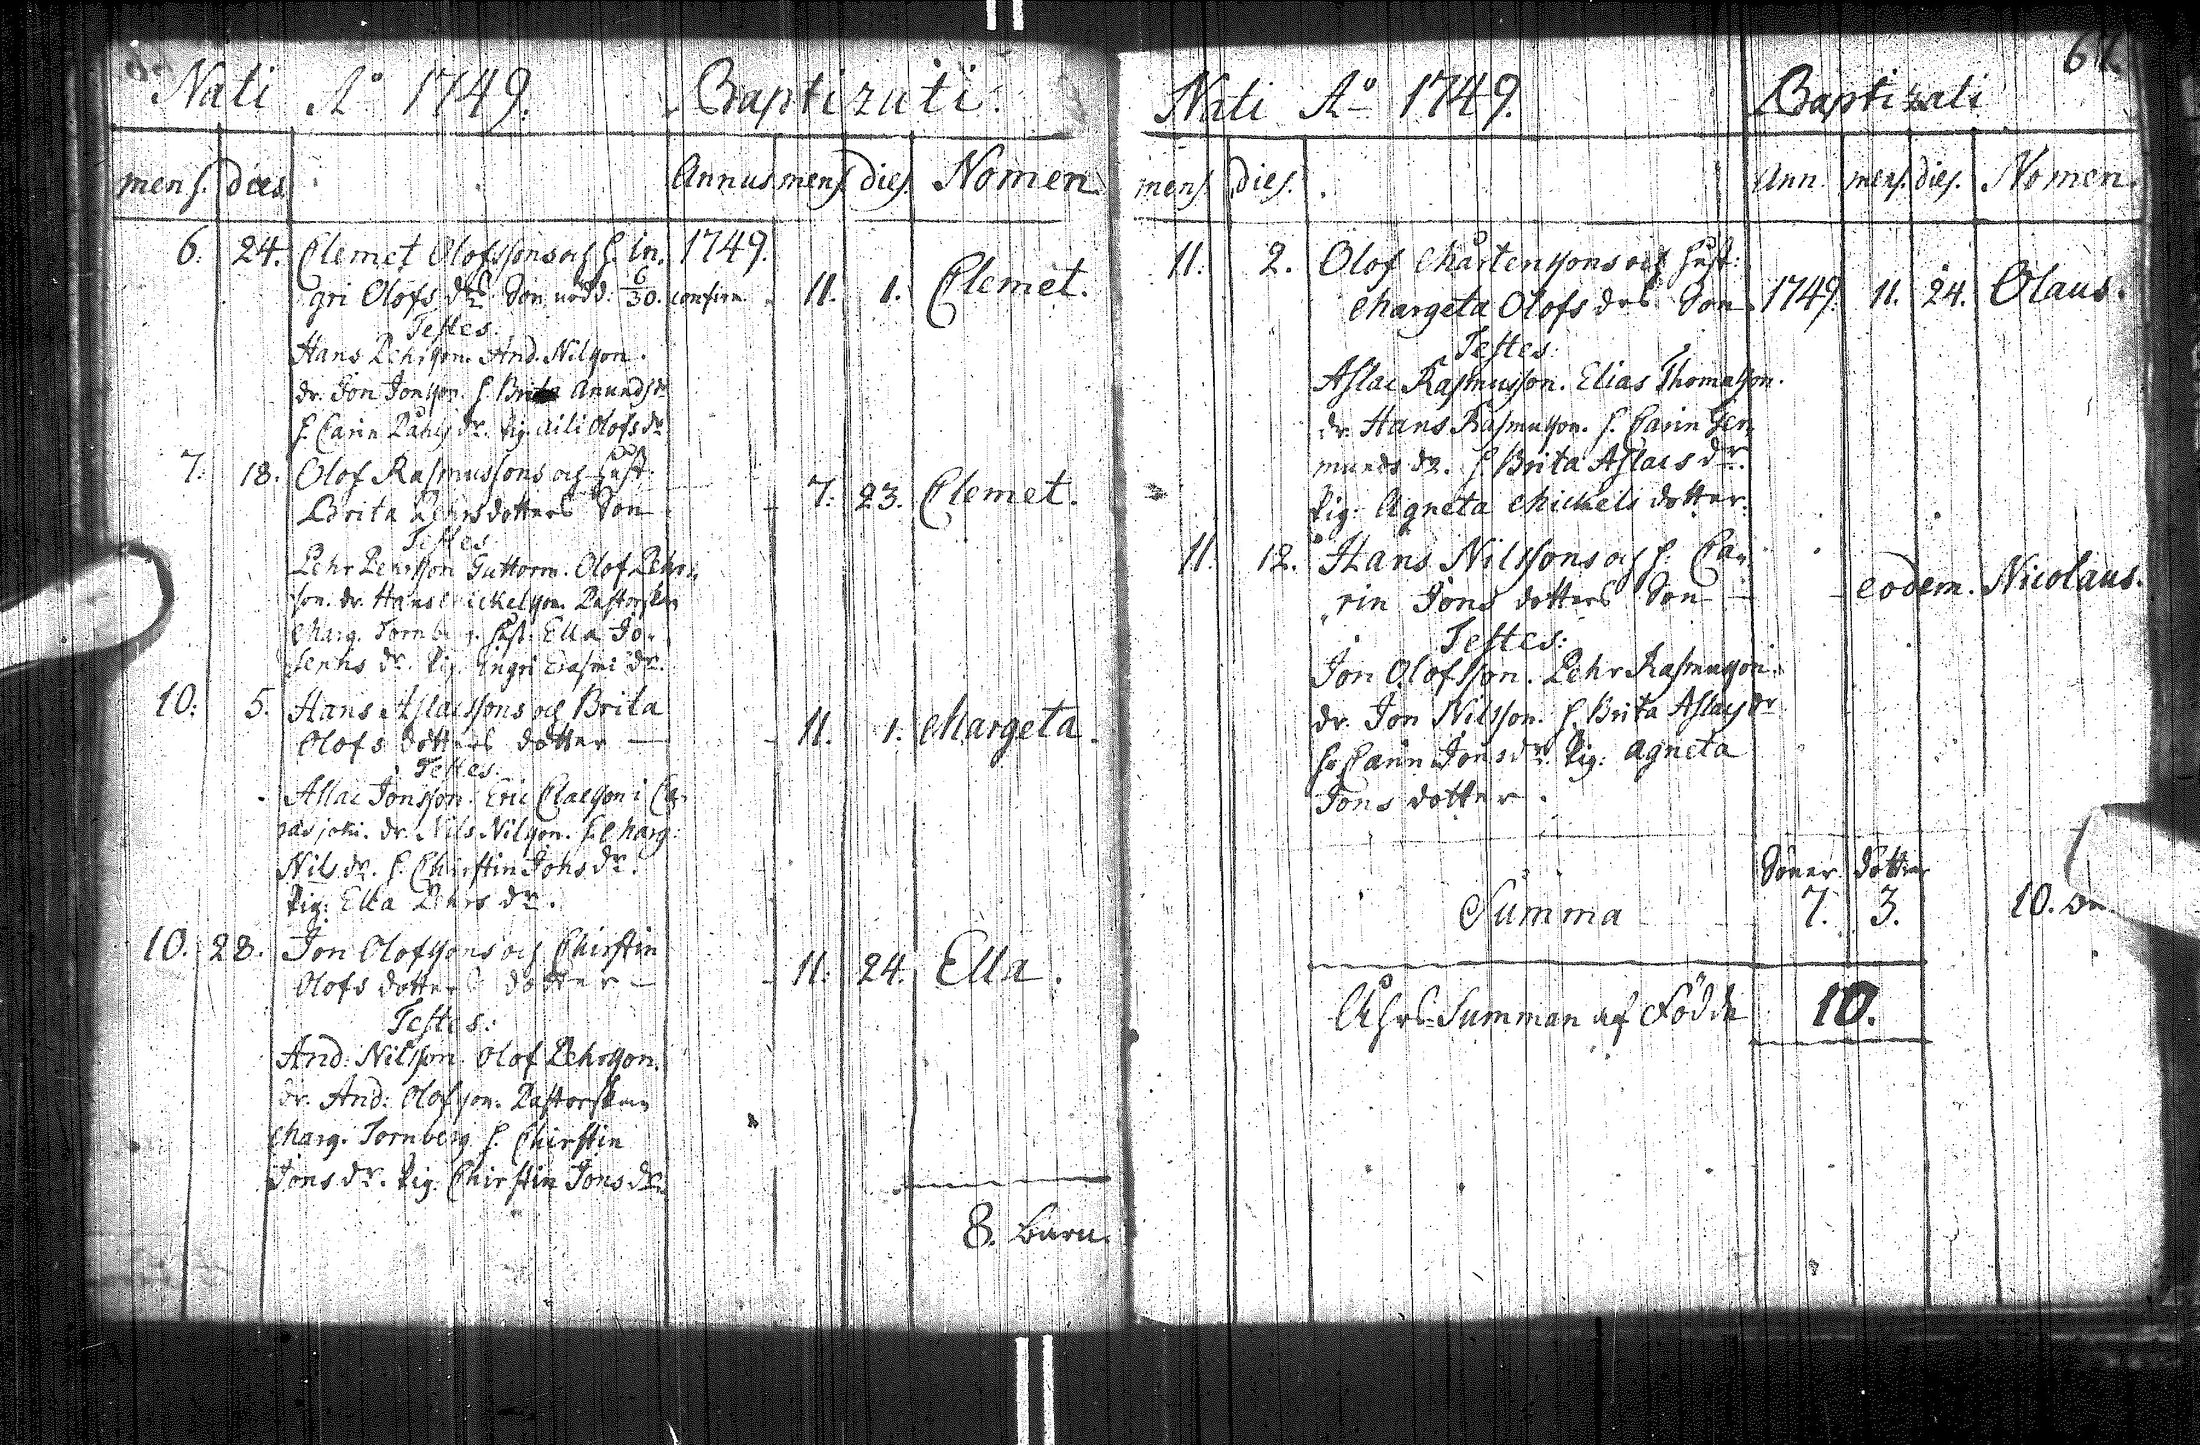 Nati Aº 1749. Baptizati.
mens. dies. Annus mens. dies. Nomen.
6. 24. Clemet Olofssons och h. In- 1749.
gri Olofs dr Son nödd. 6/30. confirm. 11. 1. Clemet.
Testes.
Hans Pehrsson. And. Nilsson.
dr. Jon Jonsson. h. Brita Anunds dr
h. Carin Påhls dr. Pig. Aili Olofs dr
7. 18. Olof Rasmussons och Hust.
Brita Pehrsdotters Son 7. 23. Clemet.
Testes
Pehr Pehrsson Guttorm. Olof Pehrs-
son. dr. Hans Mickelsson. Pastorskan
Marg. Tornberg. Hust. Ella Jo-
sephs dr. Pig. Ingri Erasmi dr.
10. 5. Hans Aslacssons och Brita
Olofs dotters dotter 11. 1. Margeta.
Testes.
Aslac Jonsson. Eric Claesson i Ca-
rasjoki. dr. Nils Nilsson. h. Marg.
Nils dr. h. Chirstin Johs dr.
Pig. Ella Pehrs dr.
10. 28. Jon Olofssons och Chirstin
Olofs dotters dotter 11. 24. Ella.
Testes.
And. Nilsson. Olof Pehrsson.
dr. And. Olofsson. Pastorskan
Marg. Tornberg h. Chirstin
Jons dr. Pig. Chirstin Jons dr.
8. barn.
61.
Nati Aº 1749. Baptizati
mens. dies. Ann. mens. dies. Nomen.
11. 2. Olof Mårtenssons och Hust:
Margeta Olofs drs Son 1749. 11. 24. Olaus.
Testes.
Aslac Rasmusson. Elias Thomasson.
dr. Hans Rasmusson. h. Carin
munds dr. h. Brita Aslacs dr.
Pig: Agneta Mickels dotter.
11. 12. Hans Nilssons och h. Ca-
rin Jons dotters Son eodem. Nicolaus.
Testes:
Jon Olofsson. Pehr Rasmusson.
dr. Jon Nilsson. h. Brita Aslacs dr
h. Carin Jons dr. Pig: Agneta
Jons dotter.
Söner dottrar
Summa 7. 3. 10.
Åhrs Summan af Födde 10.